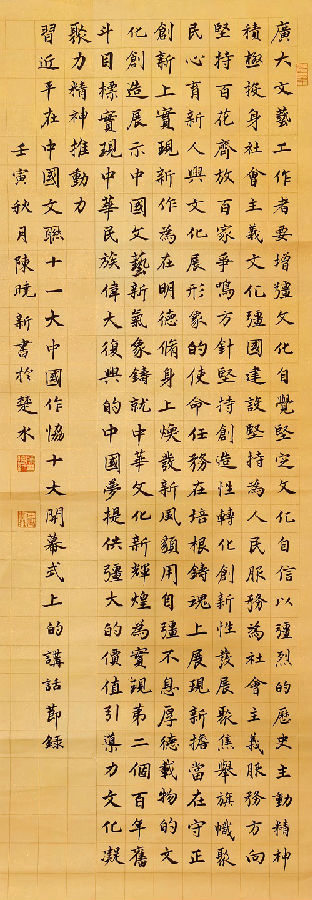 廣大文藝工作者要增彊文化自覺堅定文化自信以彊烈的歷史主動精神
積極投身社會主義文化彊國建設堅持為人民服務為社會主義服務方向
堅持百花齊放百家爭鳴方針堅持創造性轉化創新性發展聚焦舉旗幟聚
民心育新人興文化展形象的使命任務在培根鑄魂上展現新擔當在守正
創新上實現新作為在明德脩身上煥發新風貌用自彊不息厚德載物的文
化創造展示中國文藝新氣象鑄就中華文化新輝煌為實現第二個百年奮
斗目標實現中華民族偉大復興的中國夢提供彊大的價值引導力文化凝
聚力精神推動力
習近平在中國文聯十一大中國作協十大開幕式上的講話節錄
壬寅秋月陳晓新書於楚水